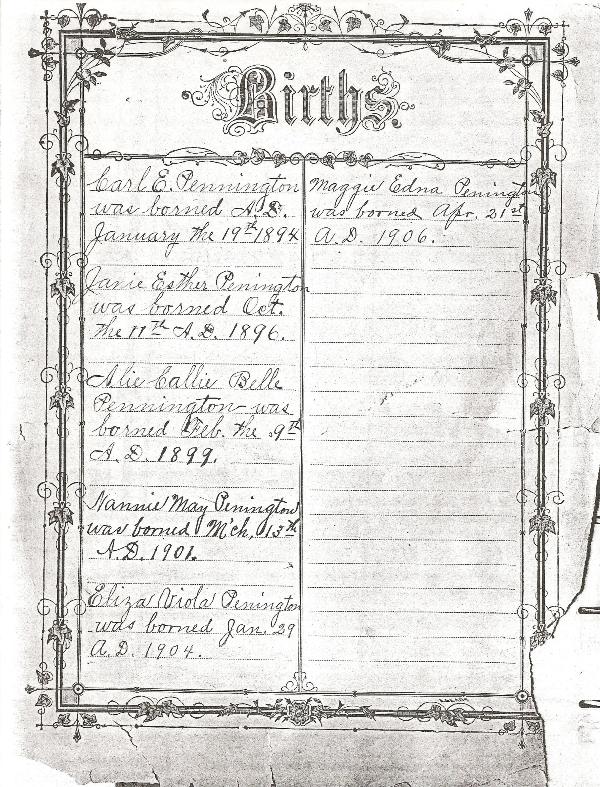 Births.
Carl E. Pennington
was borned A.D.
January the 19th 1894
Janie Esther Penington
was borned Oct.
the 11th A.D. 1896.
Alie Callie Belle
Pennington was
borned Feb. the 9th
A.D. 1899.
Nannie May Penington
was borned M'ch, 13th
A.D. 1901.
Eliza Viola Penington
was borned Jan. 29
A.D. 1904.
Maggie Edna Penington
was borned Apr. 21st
A.D. 1906.